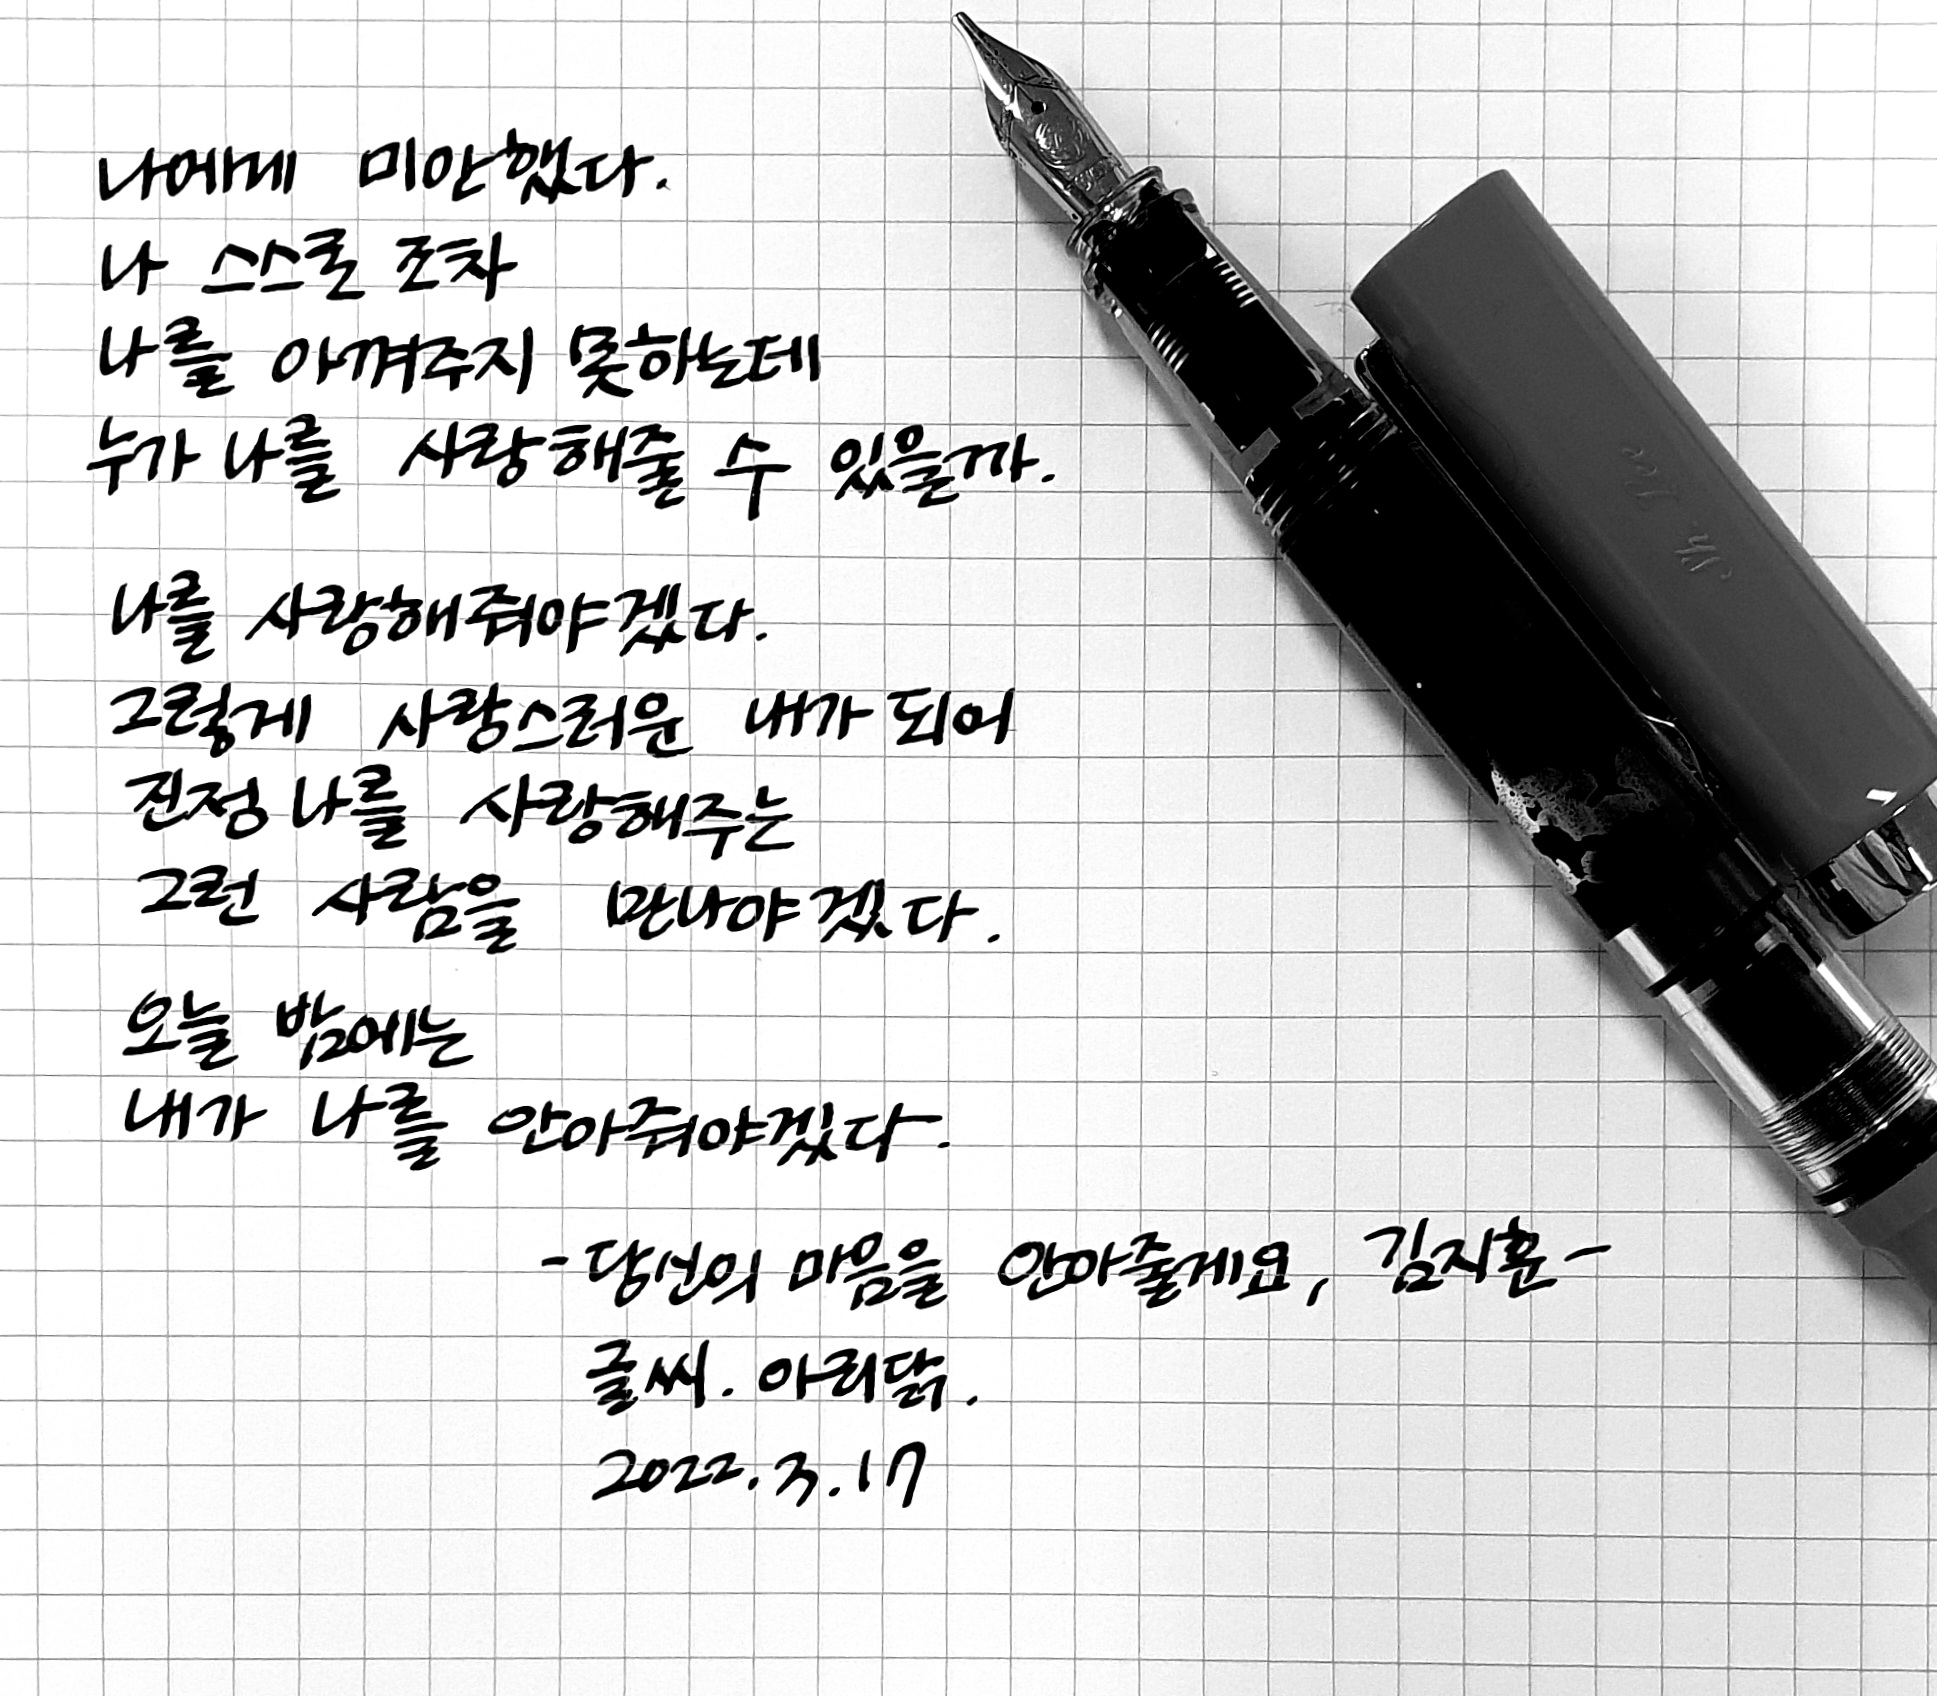 나에게 미안했다.
나 스스로 조차
나를 아껴주지 못하는데
누가 나를 사랑해줄 수 있을까.
나를 사랑해줘야겠다.
그렇게 사랑스러운 내가 되어
진정 나를 사랑해주는
그런 사람을 만나야겠다.
오늘 밤에는
내가 나를 안아줘야겠다.
- 당신의 마음을 안아줄게요, 김지훈 -
글씨. 아리닭.
2022.3.17